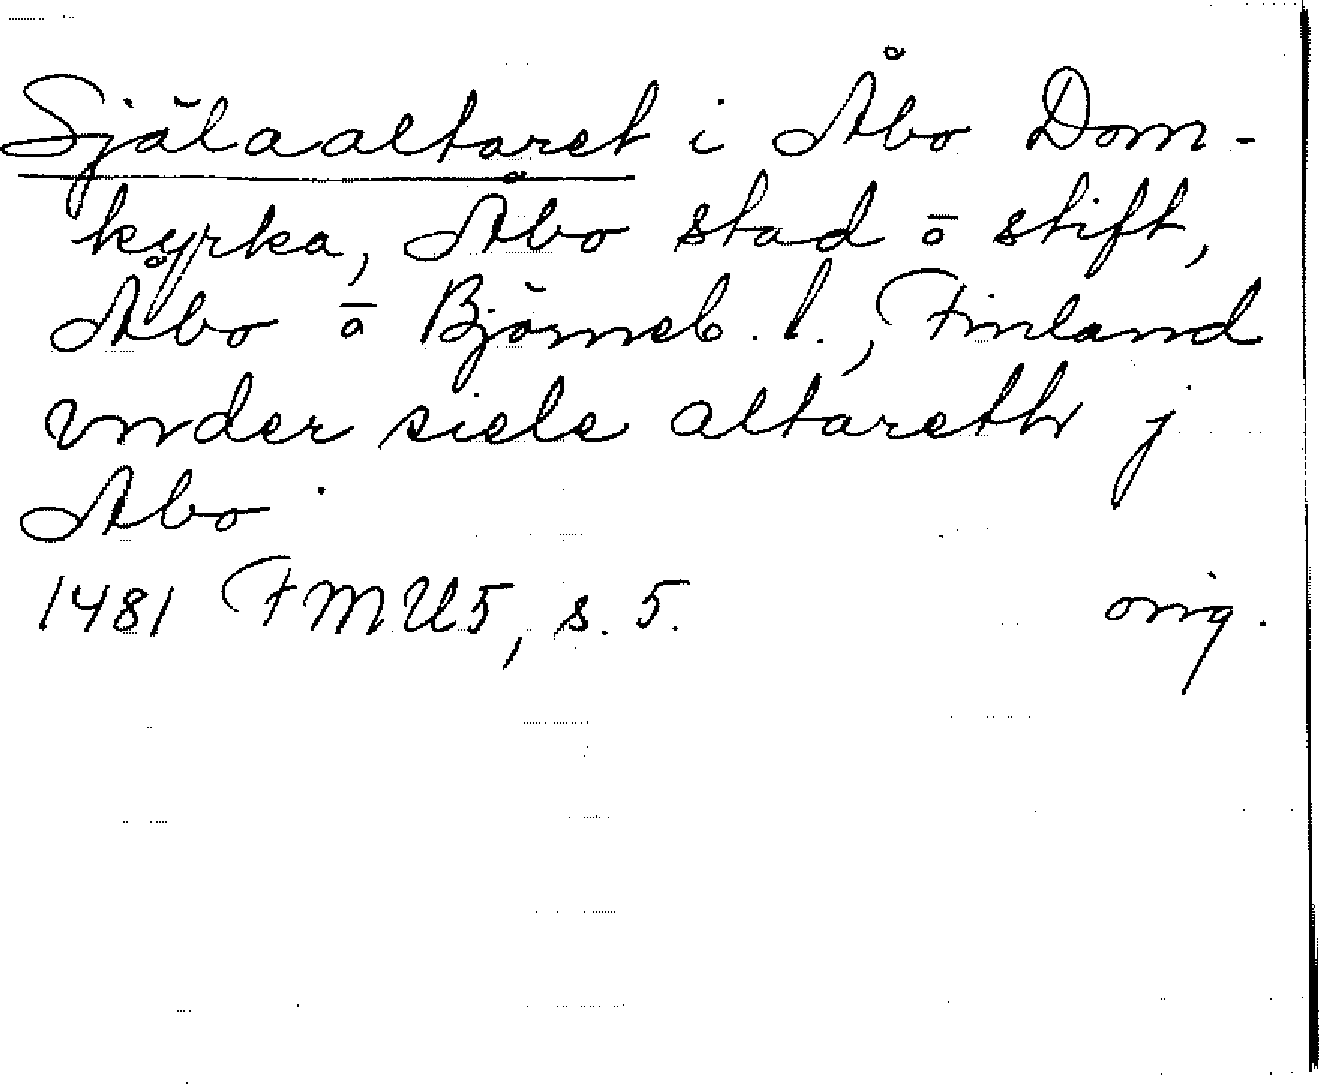 Själaaltaret i Åbo Dom-
kyrka, Åbo stad o stift,
Åbo o Björneb. l., Finland
vnder siele altareth j
Abo
1481 FMU5, s. 5. orig.